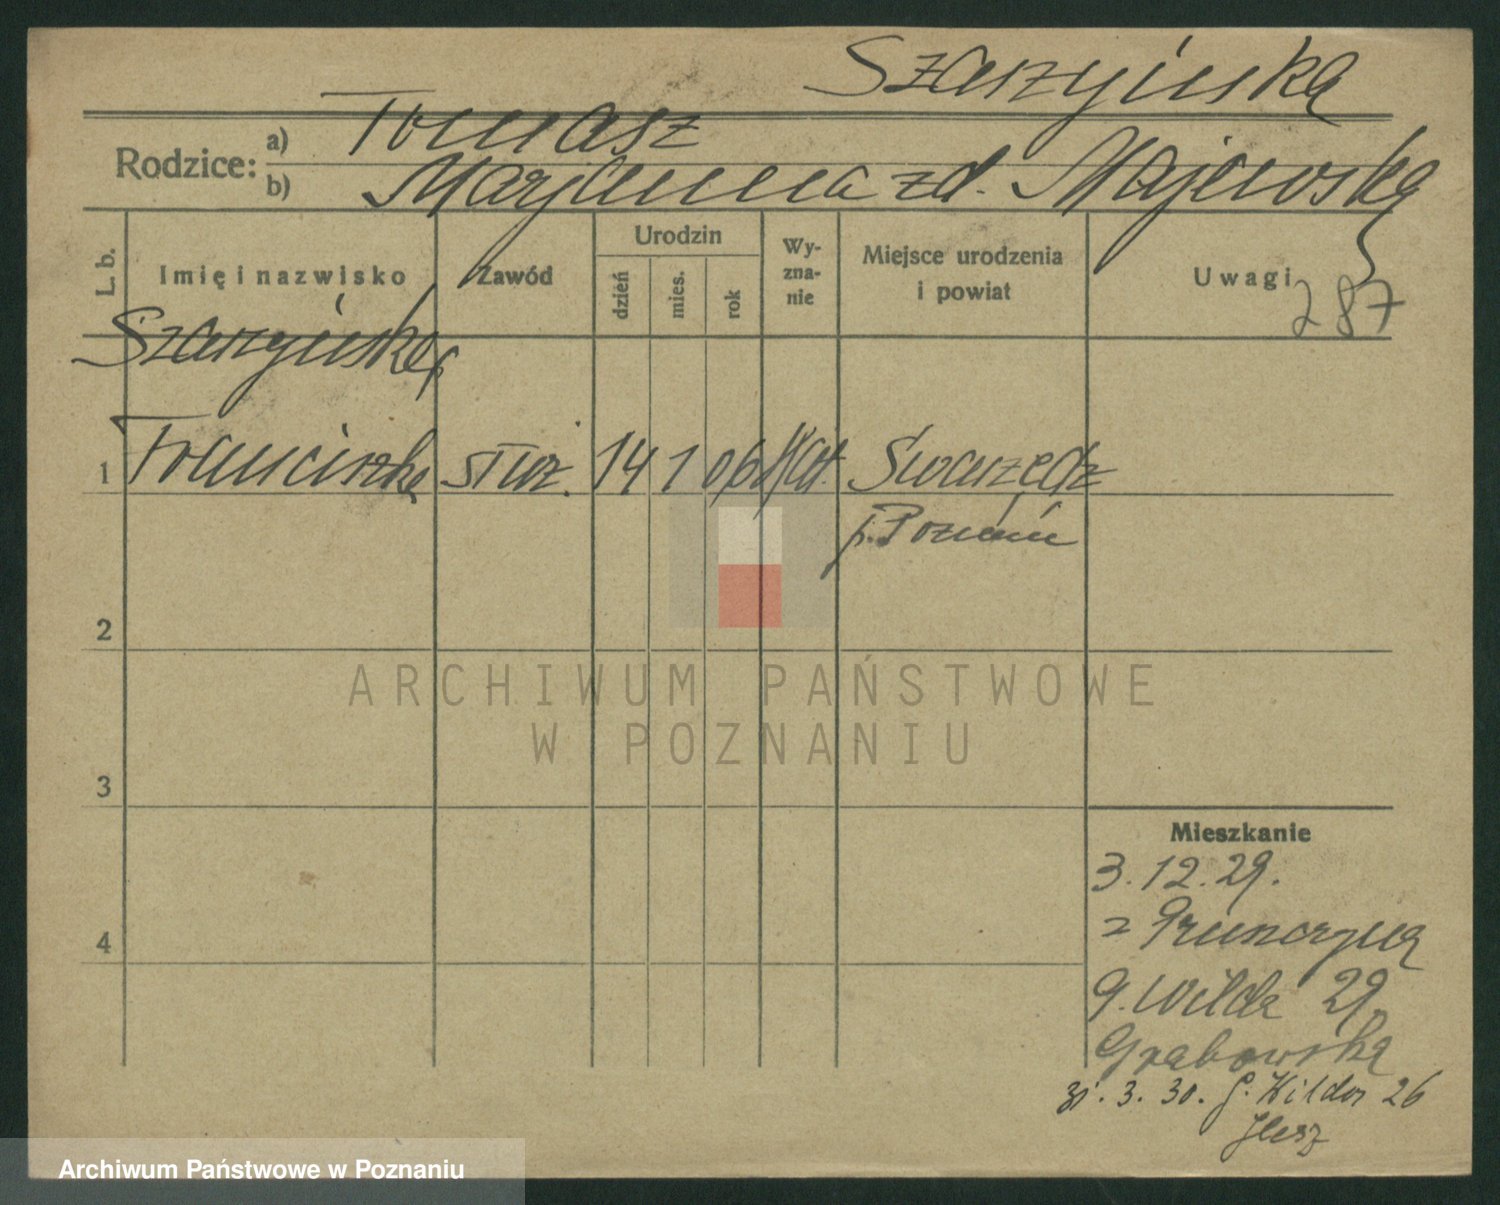 Szarzyńska
Rodzice: a) Tomasz
b) Marjanna zd. Majewska
L. b.
Imię i nazwisko
Zawód
Urodzin
dzień
mies.
rok
Wy-
zna-
nie
Miejsce urodzenia
i powiat
Uwagi
287
Szarzyńska
1 Franciszka służ. 14 1 06 kat. Swarzędz
p. Poznań
2
ARCHIWUM PAŃSTWOWE
W POZNANIU
3
Mieszkanie
3.12.29.
z
4
G. Wilda 29.
Grabowska
31. 3. 30. G. Wilda 26
Archiwum Państwowe w Poznaniu